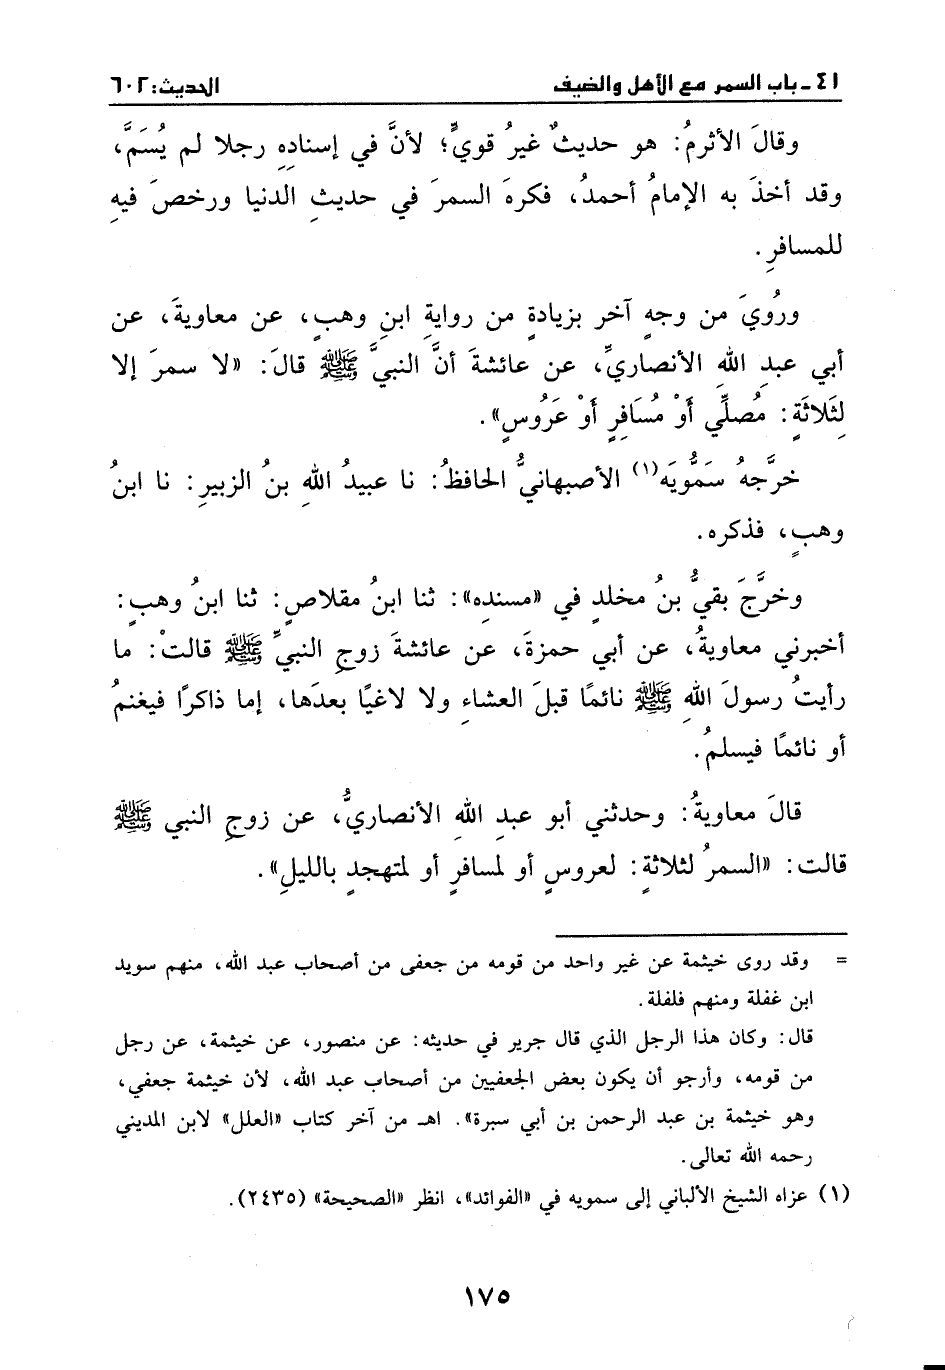 ٤١ - باب السمر مع الأهل والضيف
الحديث: ٦٠٢
وقالَ الأثرمُ: هو حديثٌ غيرُ قويٍّ؛ لأنَّ في إسنادِهِ رجلا لم يُسَمَّ،
وقد أخذَ به الإمامُ أحمدُ، فكرهَ السمرَ في حديثِ الدنيا ورخصَ فيهِ
للمسافرِ.
ورُويَ من وجهٍ آخر بزيادةٍ من روايةِ ابنِ وهبٍ، عن معاويةَ، عن
أبي عبدِ اللهِ الأنصاريِّ، عن عائشةَ أنَّ النبيَّ ﷺ قالَ: «لا سمرَ إلا
لِثَلاثَةٍ: مُصلِّي أَوْ مُسَافِرٍ أوْ عَرُوسٍ».
خرَّجهُ سَمُّويَه(١) الأصبهانيُّ الحافظُ: نا عبيدُ اللهِ بنُ الزبيرِ: نا ابنُ
وهبٍ، فذكره.
وخرَّجَ بقيُّ بنُ مخلدٍ في «مسندِه»: ثنا ابنُ مقلاصٍ: ثنا ابنُ وهبٍ:
أخبرني معاويةُ، عن أبي حمزةَ، عن عائشةَ زوجِ النبيِّ ﷺ قالتْ: ما
رأيتُ رسولَ اللهِ ﷺ نائمًا قبلَ العشاءِ ولا لاغيًا بعدَها، إما ذاكرًا فيغنمُ
أو نائمًا فيسلمُ.
قالَ معاويةُ: وحدثني أبو عبدِ اللهِ الأنصاريُّ، عن زوجِ النبي ﷺ
قالت: «السمرُ لثلاثةٍ: لعروسٍ أو لمسافرٍ أو لمتهجدٍ بالليلِ».
= وقد روى خيثمة عن غير واحد من قومه من جعفى من أصحاب عبد الله، منهم سويد
ابن غفلة ومنهم فلفلة.
قال: وكان هذا الرجل الذي قال جرير في حديثه: عن منصور، عن خيثمة، عن رجل
من قومه، وأرجو أن يكون بعض الجعفيين من أصحاب عبد الله، لأن خيثمة جعفي،
وهو خيثمة بن عبد الرحمن بن أبي سبرة». اهـ من آخر كتاب «العلل» لابن المديني
رحمه الله تعالى.
(١) عزاه الشيخ الألباني إلى سمويه في «الفوائد»، انظر «الصحيحة» (٢٤٣٥).
١٧٥